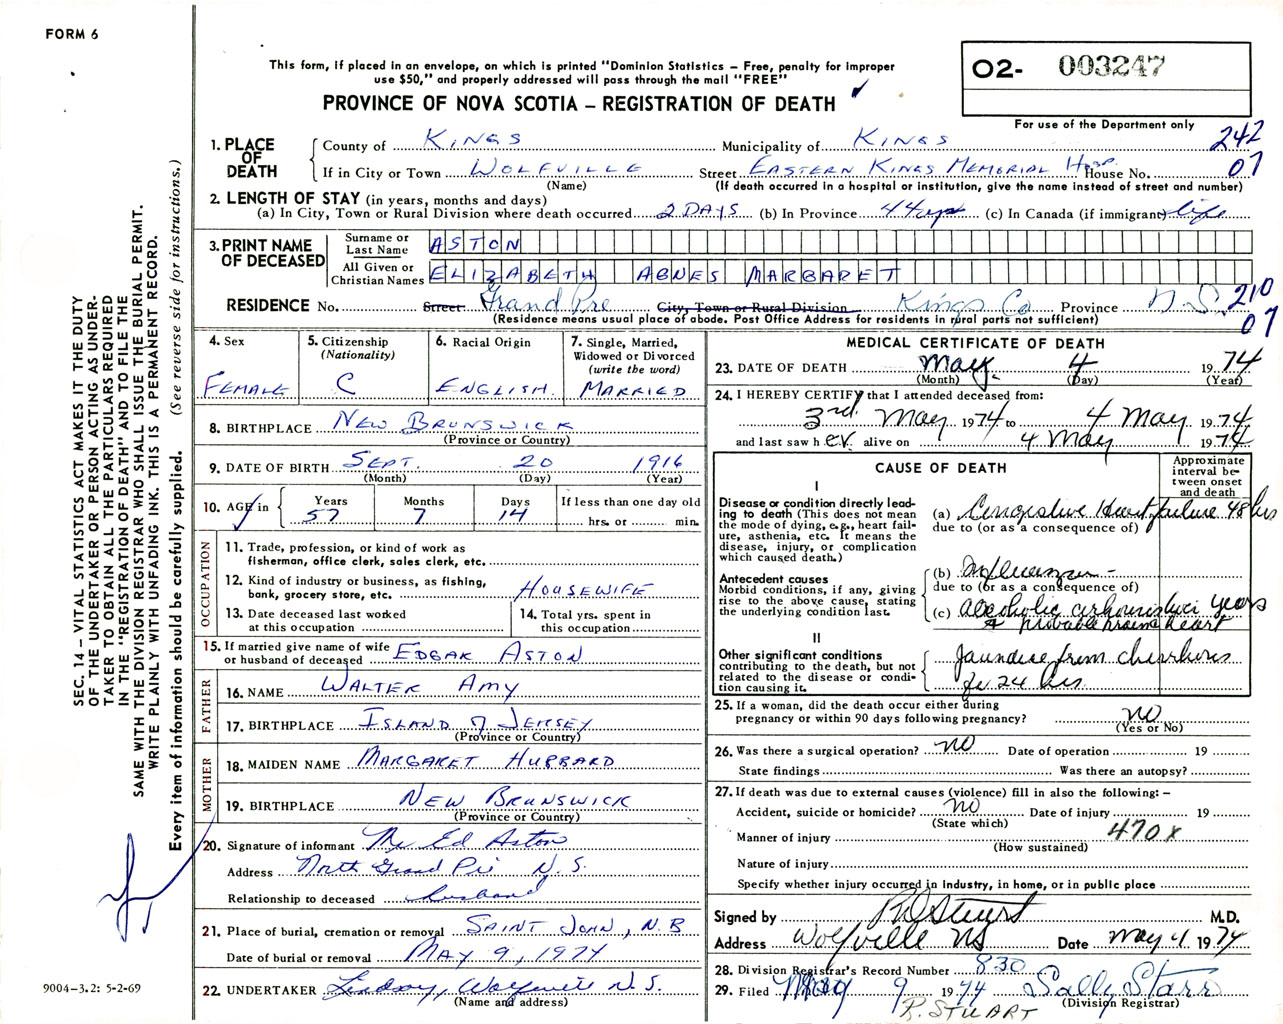 FORM 6
This form, if placed in an envelope, on which is printed "Dominion Statistics – Free, penalty for improper
use $50," and properly addressed will pass through the mail "FREE"
PROVINCE OF NOVA SCOTIA – REGISTRATION OF DEATH
02- 003247
For use of the Department only
242
07
1. PLACE OF DEATH
County of KINGS Municipality of KINGS
If in City or Town WOLFVILLE Street EASTERN KINGS MEMORIAL Hosp. House No.
(Name) (If death occurred in a hospital or institution, give the name instead of street and number)
2. LENGTH OF STAY (in years, months and days)
(a) In City, Town or Rural Division where death occurred 2 DAYS (b) In Province 44 (c) In Canada (if immigrant) life
3. PRINT NAME OF DECEASED
Surname or Last Name ASTON
All Given or Christian Names ELIZABETH AGNES MARGARET
RESIDENCE No. Street Grand Pre City, Town or Rural Division Kings Co Province N.S. 210
07
(Residence means usual place of abode. Post Office Address for residents in rural parts not sufficient)
4. Sex FEMALE
5. Citizenship (Nationality) C
6. Racial Origin ENGLISH
7. Single, Married, Widowed or Divorced (write the word) MARRIED
8. BIRTHPLACE NEW BRUNSWICK
(Province or Country)
9. DATE OF BIRTH SEPT. 20 1916
(Month) (Day) (Year)
10. AGE in Years 57 Months 7 Days 14 If less than one day old
hrs. or min.
OCCUPATION
11. Trade, profession, or kind of work as
fisherman, office clerk, sales clerk, etc.
12. Kind of industry or business, as fishing,
bank, grocery store, etc. HOUSEWIFE
13. Date deceased last worked
at this occupation
14. Total yrs. spent in
this occupation
15. If married give name of wife
or husband of deceased EDGAR ASTON
FATHER
16. NAME WALTER AMY
17. BIRTHPLACE ISLAND of JERSEY
(Province or Country)
MOTHER
18. MAIDEN NAME MARGARET HUBBARD
19. BIRTHPLACE NEW BRUNSWICK
(Province or Country)
20. Signature of informant Mr Ed Aston
Address North Grand Pré N.S.
Relationship to deceased husband
21. Place of burial, cremation or removal SAINT JOHN, N.B
Date of burial or removal MAY 9, 1974
22. UNDERTAKER Lindsay, Wolfville N.S.
(Name and address)
MEDICAL CERTIFICATE OF DEATH
23. DATE OF DEATH May 4 1974
(Month) (Day) (Year)
24. I HEREBY CERTIFY that I attended deceased from:
3rd May 1974 to 4 May 1974
and last saw her alive on 4 May 1974
CAUSE OF DEATH
Approximate interval between onset and death
I
Disease or condition directly leading to death (This does not mean the mode of dying, e.g., heart failure, asthenia, etc. It means the disease, injury, or complication which caused death.)
(a) Congestive Heart failure 48 hrs
due to (or as a consequence of)
Antecedent causes
Morbid conditions, if any, giving rise to the above cause, stating the underlying condition last.
(b) Influenza –
due to (or as a consequence of)
(c) Alcoholic years
probable heart
II
Other significant conditions
contributing to the death, but not related to the disease or condition causing it.
Jaundice from
24 hrs.
25. If a woman, did the death occur either during
pregnancy or within 90 days following pregnancy? no
(Yes or No)
26. Was there a surgical operation? no Date of operation 19
State findings Was there an autopsy?
27. If death was due to external causes (violence) fill in also the following: –
Accident, suicide or homicide? no Date of injury 19
(State which)
Manner of injury 470x
(How sustained)
Nature of injury
Specify whether injury occurred in industry, in home, or in public place
Signed by M.D.
Address Wolfville NS Date May 4 1974
28. Division Registrar's Record Number 830
29. Filed May 9 1974 Sally Starr
(Division Registrar)
R. STUART
SEC. 14 – VITAL STATISTICS ACT MAKES IT THE DUTY
OF THE UNDERTAKER OR PERSON ACTING AS UNDER-
TAKER TO OBTAIN ALL THE PARTICULARS REQUIRED
IN THE "REGISTRATION OF DEATH" AND TO FILE THE
SAME WITH THE DIVISION REGISTRAR WHO SHALL ISSUE THE BURIAL PERMIT.
WRITE PLAINLY WITH UNFADING INK. THIS IS A PERMANENT RECORD.
Every item of information should be carefully supplied. (See reverse side for instructions.)
9004-3.2: 5-2-69